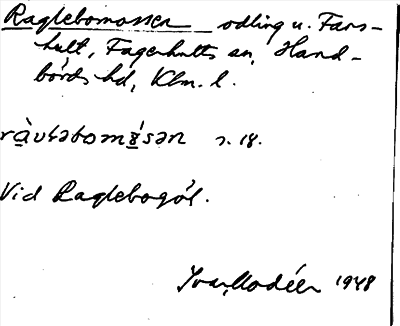 Raglebomossen odling u. Fars-
hult, Fagerhults sn, Hand-
börds hd, Klm. l.
ràvɬəbomósən s. 18.
Vid Raglebogöl.
Ivar Modéer 1948